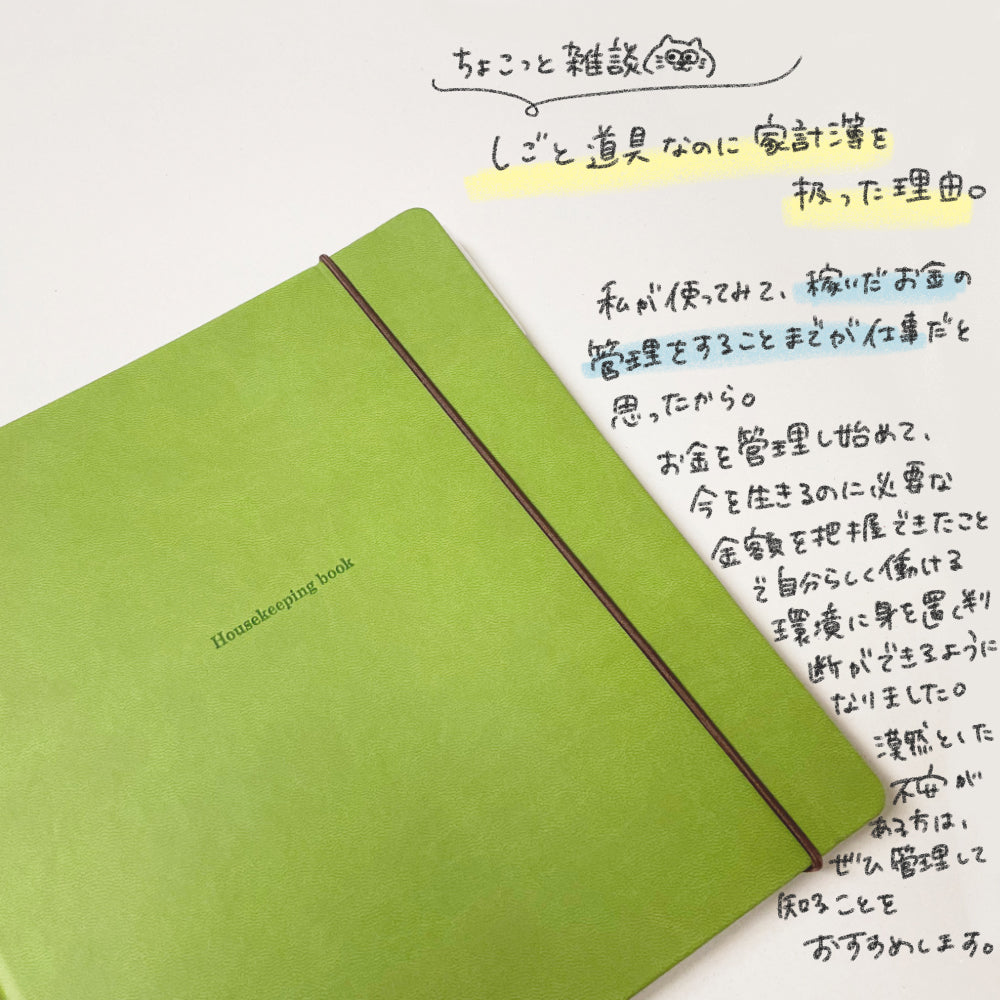 ちょこっと雑談
しごと道具なのに家計簿を
扱った理由。
私が使ってみて、稼いだお金の
管理をすることまでが仕事だと
思ったから。
お金を管理し始めて、
今を生きるのに必要な
金額を把握できたこと
で自分らしく働ける
環境に身を置く判
断ができるように
なりました。
漠然とした
不安が
ある方は、
ぜひ管理して
知ることを
おすすめします。
Housekeeping book